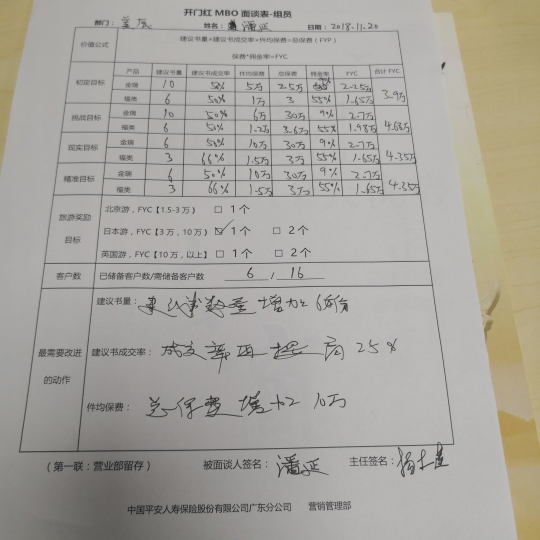 开门红 MBO 面谈表-组员
部门: 姓名: 潘延 日期: 2018.11.20
价值公式 建议书量*建议书成交率*件均保费=总保费 (FYP)
保费*佣金率=FYC
产品 建议书量 建议书成交率 件均保费 总保费 佣金率 FYC 合计 FYC
初定目标 金瑞 10 50% 5万 2.5万 2.25万 3.9万
福类 6 50% 1万 3 55% 1.65万
挑战目标 金瑞 10 50% 6万 30万 9% 2.7万 4.68万
福类 6 50% 1.2万 3.6万 55% 1.98万
现实目标 金瑞 6 50% 10万 30万 9% 2.7万 4.35万
福类 3 66% 1.5万 3万 55% 1.65万
精准目标 金瑞 6 50% 10万 30万 9% 2.7万 4.35万
福类 3 66% 1.5万 3万 55% 1.65万
旅游奖励目标
北京游，FYC【1.5-3 万】 □ 1个
日本游，FYC【3 万，10 万】 ☑ 1个 □ 2个
英国游，FYC【10 万，以上】 □ 1个 □ 2个
客户数 已储备客户数/需储备客户数 6 / 16
最需要改进的动作
建议书量: 建议书数量增加 6
建议书成交率: 成交率 提高 25%
件均保费: 总保费增加 10万
(第一联: 营业部留存) 被面谈人签名: 潘延 主任签名:
中国平安人寿保险股份有限公司广东分公司 营销管理部